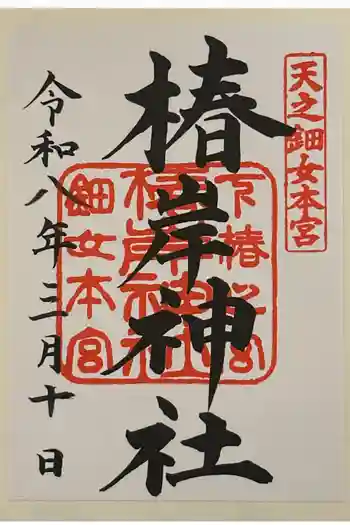 天之鈿女本宮
椿岸神社
令和八年三月十日
鈿女本宮